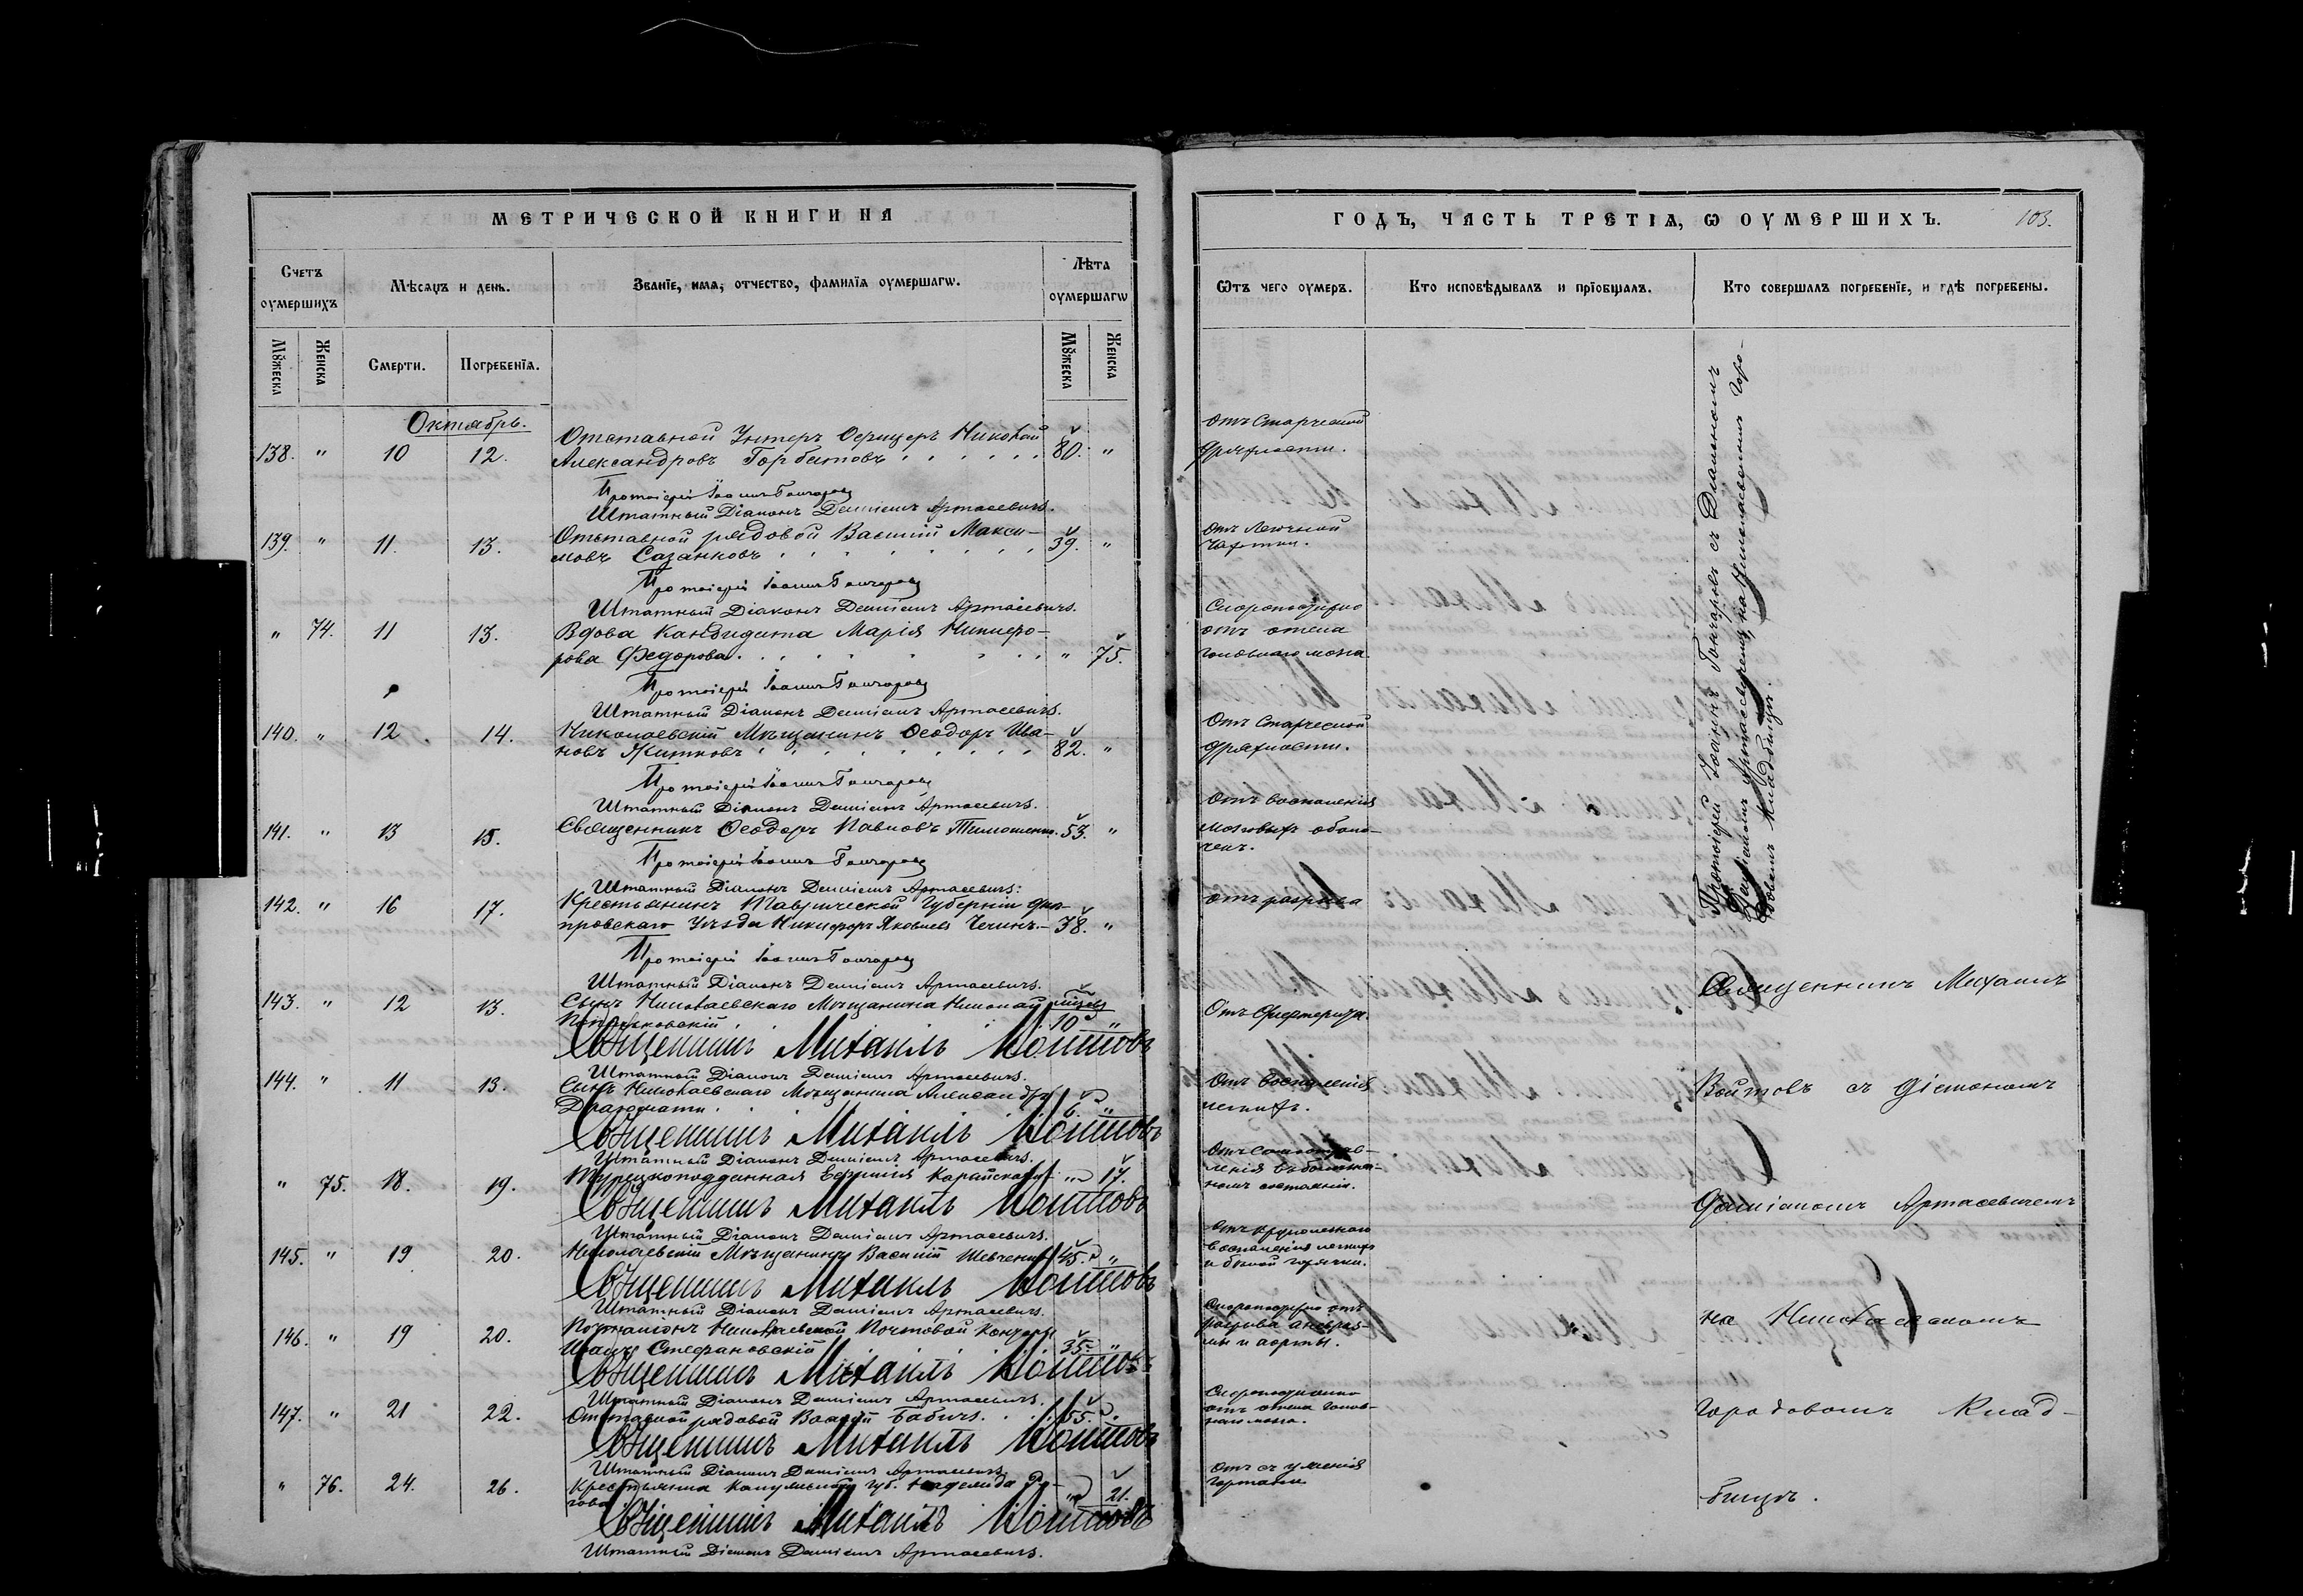 МЕТРИЧЕСКОЙ КНИГИ НА
Счетъ оумершихъ
Мѣсяцъ и день.
Званїе, имя, отчество, фамилїя оумершагѡ.
Лѣта оумершагѡ
Мꙋжеска
Женска
Смерти.
Погребенїя.
Мꙋжеска
Женска
Октябрь.
138. " 10 12. Отставной Унтеръ Офицеръ Николай
Александровъ Горбатовъ 80. "
Протоіерей Іоаннъ Гончаровъ
Штатный Діаконъ Даміанъ Артасевичъ.
139. " 11. 13. Отставной рядовой Василій Макси-
мовъ Сазанковъ 39. "
Протоіерей Іоаннъ Гончаровъ
Штатный Діаконъ Даміанъ Артасевичъ.
" 74. 11 13. Вдова Кандидата Марія Никифо-
рова Федорова. " 75.
Протоіерей Іоаннъ Гончаровъ
Штатный Діаконъ Даміанъ Артасевичъ.
140. " 12 14. Николаевскій Мѣщанинъ Ѳеодоръ Ива-
новъ Житковъ 82. "
Протоіерей Іоаннъ Гончаровъ
Штатный Діаконъ Даміанъ Артасевичъ.
141. " 13 15. Священникъ Ѳеодоръ Павловъ 53. "
Протоіерей Іоаннъ Гончаровъ
Штатный Діаконъ Даміанъ Артасевичъ.
142. " 16 17. Крестьянинъ Таврической Губерніи Днѣ-
провскаго Уѣзда Никифоръ Яковлевъ 38. "
Протоіерей Іоаннъ Гончаровъ
Штатный Діаконъ Даміанъ Артасевичъ.
143. " 12 13. Сынъ Николаевскаго Мѣщанина Николай
10 "
Священникъ Михаилъ Войтовъ
Штатный Діаконъ Даміанъ Артасевичъ.
144. " 11 13. Сынъ Николаевскаго Мѣщанина Александръ
6. "
Священникъ Михаилъ Войтовъ
Штатный Діаконъ Даміанъ Артасевичъ.
" 75. 18. 19. Турецкоподданная " 17.
Священникъ Михаилъ Войтовъ
Штатный Діаконъ Даміанъ Артасевичъ.
145. " 19 20. Николаевскій Мѣщанинъ Василій Шевченко 45. "
Священникъ Михаилъ Войтовъ
Штатный Діаконъ Даміанъ Артасевичъ.
146. " 19 20. Почталіонъ Николаевской Почтовой Конторы
Стефановскій 35. "
Священникъ Михаилъ Войтовъ
Штатный Діаконъ Даміанъ Артасевичъ.
147. " 21 22. Отставной рядовой Бабичъ. 55.
Священникъ Михаилъ Войтовъ
Штатный Діаконъ Даміанъ Артасевичъ.
" 76. 24. 26. Крестьянка губ. " 21.
Священникъ Михаилъ Войтовъ
Штатный Діаконъ Даміанъ Артасевичъ.
ГОДЪ, ЧАСТЬ ТРЕТІѦ, Ѡ ОУМЕРШИХЪ.
103.
Ѿтъ чего оумеръ.
Кто исповѣдывалъ и прїобщалъ.
Кто совершалъ погребенїе, и гдѣ погребены.
отъ Старческой
дряхлости.
отъ Легочной
чахотки.
Скоропостижно
отъ отека
головнаго мозга.
Отъ Старческой
дряхлости.
Отъ воспаленія
мозговыхъ оболо-
чекъ.
отъ разрыва
Отъ Дифтерита.
Отъ воспаленія
легкихъ.
Отъ Самоотрав-
ленія въ болѣзнен-
номъ состояніи.
Отъ крупознаго
воспаленія легкихъ
и бѣлой горячки.
Скоропостижно отъ
разрыва аневриз-
мы и аорты.
Скоропостижно
отъ отека голов-
наго мозга.
гортани
Протоіерей Іоаннъ Гончаровъ съ Діакономъ
Даміаномъ Артасевичемъ, на Николаевскомъ Горо-
довомъ Кладбищѣ.
Священникъ Михаилъ
Войтовъ съ Діакономъ
Даміаномъ Артасевичемъ
на Николаевскомъ
Городовомъ Клад-
бищѣ.